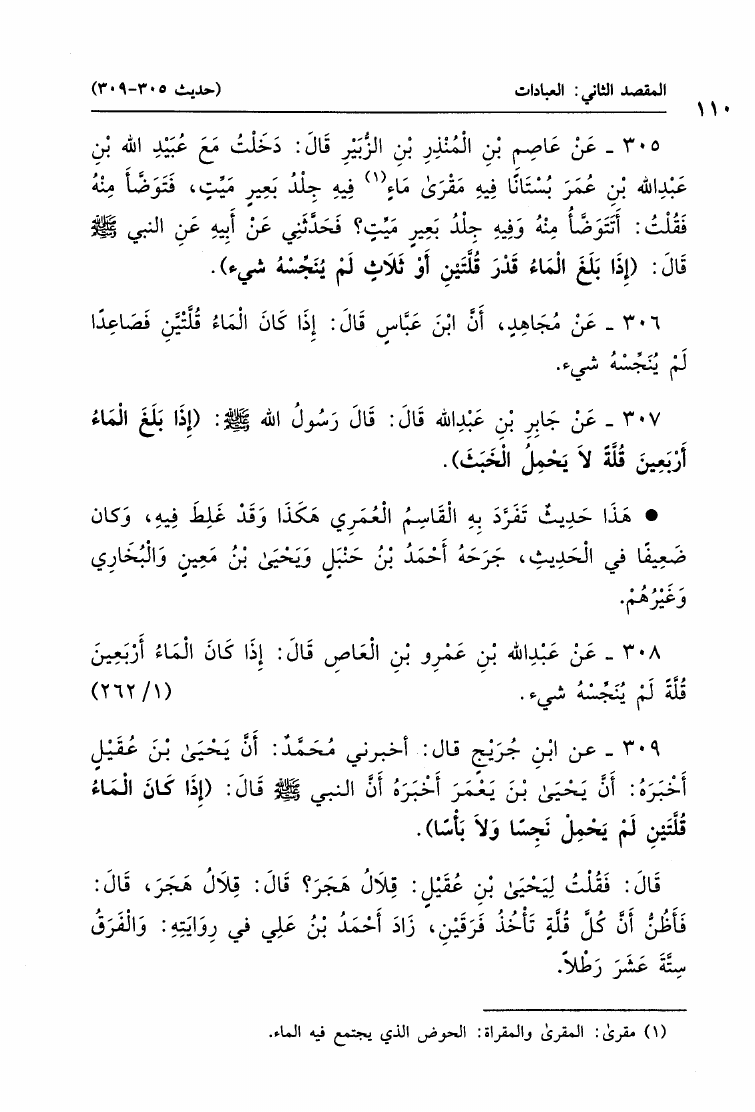 المقصد الثاني: العبادات (حديث ٣٠٥-٣٠٩)
١١٠
٣٠٥ ـ عَنْ عَاصِمِ بْنِ الْمُنْذِرِ بْنِ الزُّبَيْرِ قَالَ: دَخَلْتُ مَعَ عُبَيْدِ الله بْنِ
عَبْدِالله بْنِ عُمَرَ بُسْتَانًا فِيهِ مَقْرَىٰ مَاءٍ(١) فِيهِ جِلْدُ بَعِيرٍ مَيِّتٍ، فَتَوَضَّأَ مِنْهُ
فَقُلْتُ: أَتَتَوَضَّأُ مِنْهُ وَفِيهِ جِلْدُ بَعِيرٍ مَيِّتٍ؟ فَحَدَّثَنِي عَنْ أَبِيهِ عَنِ النبي ﷺ
قَالَ: (إِذَا بَلَغَ الْمَاءُ قَدْرَ قُلَّتَيْنِ أَوْ ثَلَاثٍ لَمْ يُنَجِّسْهُ شيء).
٣٠٦ ـ عَنْ مُجَاهِدٍ، أَنَّ ابْنَ عَبَّاسٍ قَالَ: إِذَا كَانَ الْمَاءُ قُلَّتَيْنِ فَصَاعِدًا
لَمْ يُنَجِّسْهُ شيء.
٣٠٧ ـ عَنْ جَابِرِ بْنِ عَبْدِالله قَالَ: قَالَ رَسُولُ الله ﷺ: (إِذَا بَلَغَ الْمَاءُ
أَرْبَعِينَ قُلَّةً لاَ يَحْمِلُ الْخَبَثَ).
● هَذَا حَدِيثٌ تَفَرَّدَ بِهِ الْقَاسِمُ الْعُمَرِي هَكَذَا وَقَدْ غَلِطَ فِيهِ، وَكان
ضَعِيفًا في الْحَدِيثِ، جَرَحَهُ أَحْمَدُ بْنُ حَنْبَلٍ وَيَحْيَىٰ بْنُ مَعِينٍ وَالْبُخَارِي
وَغَيْرُهُمْ.
٣٠٨ ـ عَنْ عَبْدِالله بْنِ عَمْرِو بْنِ الْعَاصِ قَالَ: إِذَا كَانَ الْمَاءُ أَرْبَعِينَ
قُلَّةً لَمْ يُنَجِّسْهُ شيء. (١/ ٢٦٢)
٣٠٩ ـ عن ابْنِ جُرَيْجٍ قال: أخبرني مُحَمَّدٌ: أَنَّ يَحْيَىٰ بْنَ عُقَيْلٍ
أَخْبَرَهُ: أَنَّ يَحْيَىٰ بْنَ يَعْمَرَ أَخْبَرَهُ أَنَّ النبي ﷺ قَالَ: (إِذَا كَانَ الْمَاءُ
قُلَّتَيْنِ لَمْ يَحْمِلْ نَجِسًا وَلاَ بَأْسًا).
قَالَ: فَقُلْتُ لِيَحْيَىٰ بْنِ عُقَيْلٍ: قِلاَلُ هَجَرَ؟ قَالَ: قِلاَلُ هَجَرَ، قَالَ:
فَأَظُنُّ أَنَّ كُلَّ قُلَّةٍ تَأْخُذُ فَرَقَيْنِ، زَادَ أَحْمَدُ بْنُ عَلِي في رِوَايَتِهِ: وَالْفَرَقُ
سِتَّةَ عَشَرَ رَطْلاً.
(١) مقرىٰ: المقرىٰ والمقراة: الحوض الذي يجتمع فيه الماء.